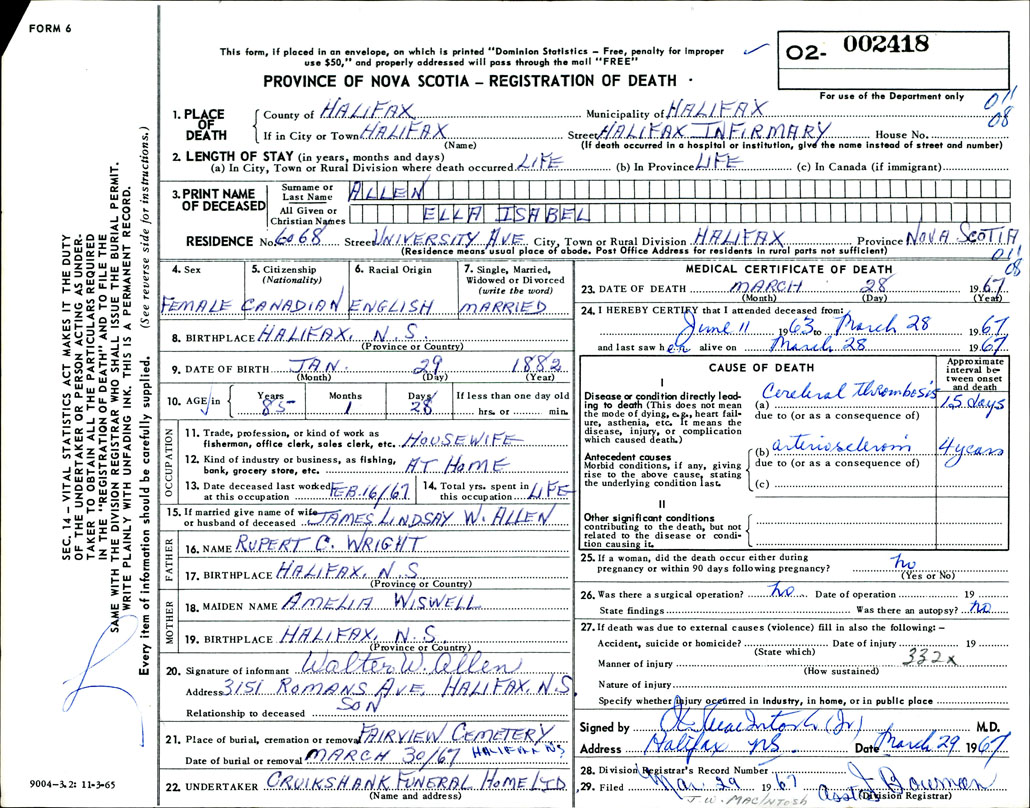 FORM 6
This form, if placed in an envelope, on which is printed "Dominion Statistics – Free, penalty for improper
use $50," and properly addressed will pass through the mail "FREE"
O2- 002418
PROVINCE OF NOVA SCOTIA – REGISTRATION OF DEATH
For use of the Department only
011
08
1. PLACE OF DEATH
County of HALIFAX Municipality of HALIFAX
If in City or Town HALIFAX Street HALIFAX INFIRMARY House No.
(Name) (If death occurred in a hospital or institution, give the name instead of street and number)
2. LENGTH OF STAY (in years, months and days)
(a) In City, Town or Rural Division where death occurred LIFE (b) In Province LIFE (c) In Canada (if immigrant)
3. PRINT NAME OF DECEASED
Surname or Last Name ALLEN
All Given or Christian Names ELLA ISABEL
RESIDENCE No. 6068 Street UNIVERSITY AVE City, Town or Rural Division HALIFAX Province NOVA SCOTIA
(Residence means usual place of abode. Post Office Address for residents in rural parts not sufficient)
011
08
4. Sex
FEMALE
5. Citizenship
(Nationality)
CANADIAN
6. Racial Origin
ENGLISH
7. Single, Married,
Widowed or Divorced
(write the word)
MARRIED
8. BIRTHPLACE HALIFAX, N.S.
(Province or Country)
9. DATE OF BIRTH JAN. 29 1882
(Month) (Day) (Year)
10. AGE in Years Months Days If less than one day old
85 1 28 hrs. or min.
OCCUPATION
11. Trade, profession, or kind of work as
fisherman, office clerk, sales clerk, etc. HOUSEWIFE
12. Kind of industry or business, as fishing,
bank, grocery store, etc. AT HOME
13. Date deceased last worked
at this occupation FEB. 16/67
14. Total yrs. spent in
this occupation LIFE
15. If married give name of wife
or husband of deceased JAMES LINDSAY W. ALLEN
FATHER
16. NAME RUPERT C. WRIGHT
17. BIRTHPLACE HALIFAX, N.S.
(Province or Country)
MOTHER
18. MAIDEN NAME AMELIA WISWELL
19. BIRTHPLACE HALIFAX, N.S.
(Province or Country)
20. Signature of informant Walter W. Allen
Address 3151 ROMANS AVE HALIFAX, N.S.
Relationship to deceased SON
21. Place of burial, cremation or removal FAIRVIEW CEMETERY
Date of burial or removal MARCH 30/67 HALIFAX NS
22. UNDERTAKER CRUIKSHANK FUNERAL HOME LTD
(Name and address)
MEDICAL CERTIFICATE OF DEATH
23. DATE OF DEATH MARCH 28 1967
(Month) (Day) (Year)
24. I HEREBY CERTIFY that I attended deceased from:
June 11 1963 to March 28 1967
and last saw her alive on March 28 1967
CAUSE OF DEATH
Approximate
interval be-
tween onset
and death
I
Disease or condition directly lead-
ing to death (This does not mean
the mode of dying, e.g., heart fail-
ure, asthenia, etc. It means the
disease, injury, or complication
which caused death.)
(a) Cerebral Thrombosis 15 days
due to (or as a consequence of)
Antecedent causes
Morbid conditions, if any, giving
rise to the above cause, stating
the underlying condition last.
(b) arteriosclerosis 4 years
due to (or as a consequence of)
(c)
II
Other significant conditions
contributing to the death, but not
related to the disease or condi-
tion causing it.
25. If a woman, did the death occur either during
pregnancy or within 90 days following pregnancy? no
(Yes or No)
26. Was there a surgical operation? no Date of operation 19
State findings Was there an autopsy? no
27. If death was due to external causes (violence) fill in also the following: –
Accident, suicide or homicide? Date of injury 19
(State which)
332x
Manner of injury
(How sustained)
Nature of injury
Specify whether injury occurred in industry, in home, or in public place
Signed by MacIntosh (Jr) M.D.
Address Halifax NS. Date March 29 1967
28. Division Registrar's Record Number
29. Filed Mar. 29 1967 Asst
(Division Registrar)
J.W. MACINTOSH
SEC. 14 – VITAL STATISTICS ACT MAKES IT THE DUTY
OF THE UNDERTAKER OR PERSON ACTING AS UNDER-
TAKER TO OBTAIN ALL THE PARTICULARS REQUIRED
IN THE "REGISTRATION OF DEATH" AND TO FILE THE
SAME WITH THE DIVISION REGISTRAR WHO SHALL ISSUE THE BURIAL PERMIT.
WRITE PLAINLY WITH UNFADING INK. THIS IS A PERMANENT RECORD.
Every item of information should be carefully supplied. (See reverse side for instructions.)
9004–3.2: 11-3-65